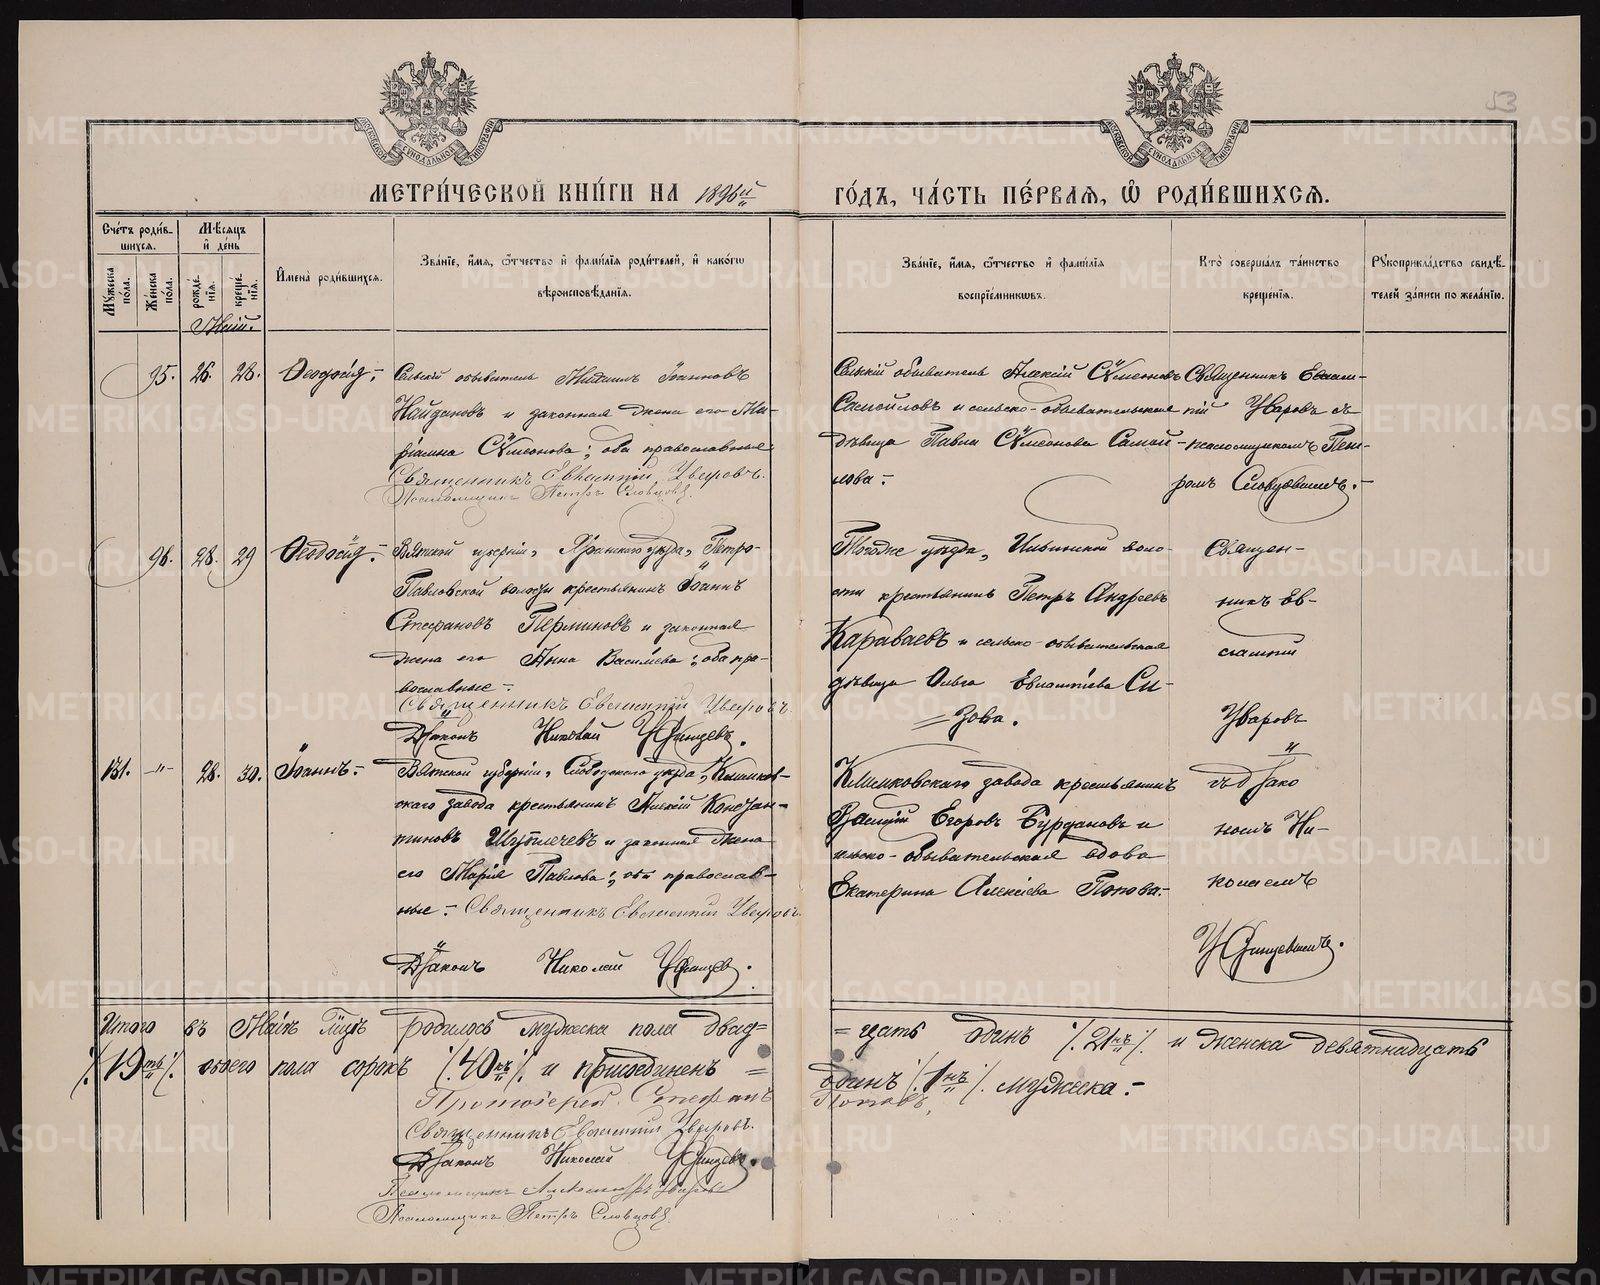 53
МОСКОВСКОЙ СѴНОДАЛЬНОЙ ТИПОГРАФІИ
МОСКОВСКОЙ СѴНОДАЛЬНОЙ ТИПОГРАФІИ
МЕТРИ́ЧЕСКОЙ КНИ́ГИ НА 1896й
ГО́ДЪ, ЧА́СТЬ ПЕ́РВАЯ, Ѿ РОДИ́ВШИХСЯ.
Сче́тъ роди́в-
шихся.
Мѣсяцъ
и де́нь
Мужеска по́ла.
Же́нска по́ла.
рожде́-нія.
креще́-нія.
Имена̀ роди́вшихся.
Зва́ніе, и́мя, ѻ҆́тчество и фами́лія роди́телей, и како́гѡ
вѣроисповѣ́данія.
Зва́ніе, и́мя, ѻ҆́тчество и фами́лія
воспріе́мникѡвъ.
Кто̀ соверша́лъ та́инство
креще́нія.
Рукоприкла́дство свидѣ́-
телей за́писи по жела́нію.
Май.
95. 26. 26. Ѳеодосія
Сельскій обыватель Михаилъ Іоанновъ
Найдановъ и законная жена его Ма-
ріамна Сѵмеонова; оба православные
Священникъ Евгений Уваровъ.
Псаломщикъ Петръ Словцовъ.
Сельскій обыватель Алексій Сѵмеоновъ
Самойловъ и сельско-обывательская
дѣвица Павла Сѵмеонова Самой-
лова
Священникъ Евлам-
пій Уваровъ съ
псаломщикомъ Пет-
ромъ Словцовымъ.
96. 28. 29 Ѳеодосія
Вятской губерніи, Яранскаго уѣзда, Петро-
Павловской волости крестьянинъ Іоаннъ
Стефановъ Перминовъ и законная
жена его Анна Васильева; оба пра-
вославные
Священникъ Евлампий Уваровъ
Діаконъ Николай
Тогоже уѣзда, Ильинской воло-
сти крестьянинъ Петръ Андреевъ
Караваевъ и сельско-обывательская
дѣвица Ольга Евлампіева Си-
зова.
Священ-
никъ Ев-
лампій
Уваровъ
съ діако
номъ Ни-
колаемъ
131. -"- 28. 30. Іоаннъ
Вятской губерніи, Слободскаго уѣзда, Климков-
скаго завода крестьянинъ Алексій Констан-
тиновъ и законная жена
его Марія Павлова; оба православ-
ные Священникъ Евлампий Уваровъ
Діаконъ Николай
Климковскаго завода крестьянинъ
Василій Егоровъ Бурдановъ и
сельско-обывательская вдова
Екатерина Алексіева Попова.
Итого въ Маѣ мцѣ родилось мужеска пола двад=
=цать одинъ /.21нъ/. и женска девятнадцать
/.19ть/. обоего пола сорокъ /.40къ/. и присоединенъ =
одинъ /.1нъ/. мужеска.
Протоіерей Стефанъ
Поповъ,
Священникъ Евлампий Уваровъ.
Діаконъ Николай
Псаломщикъ Александръ Уваровъ
Псаломщикъ Петръ Словцовъ.
METRIKI.GASO-URAL.RU